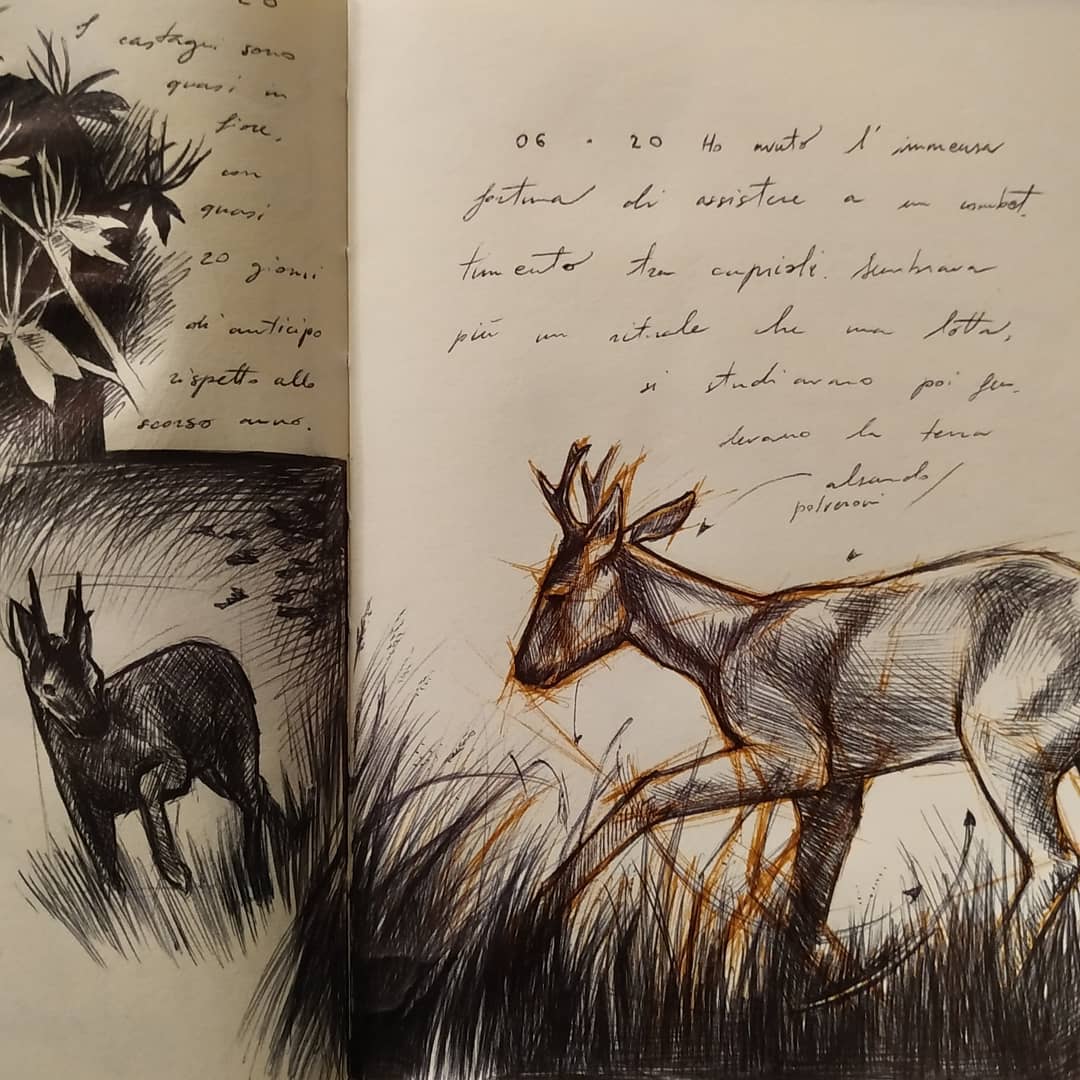 20
I castagni sono
quasi in
fiore,
con
quasi
20 giorni
di anticipo
rispetto allo
scorso anno.
06 . 20 Ho avuto l'immensa
fortuna di assistere a un combat
timento tra caprioli. Sembrava
più un rituale che una lotta,
si studiavano poi fen-
devano la terra
alzando
polveroni